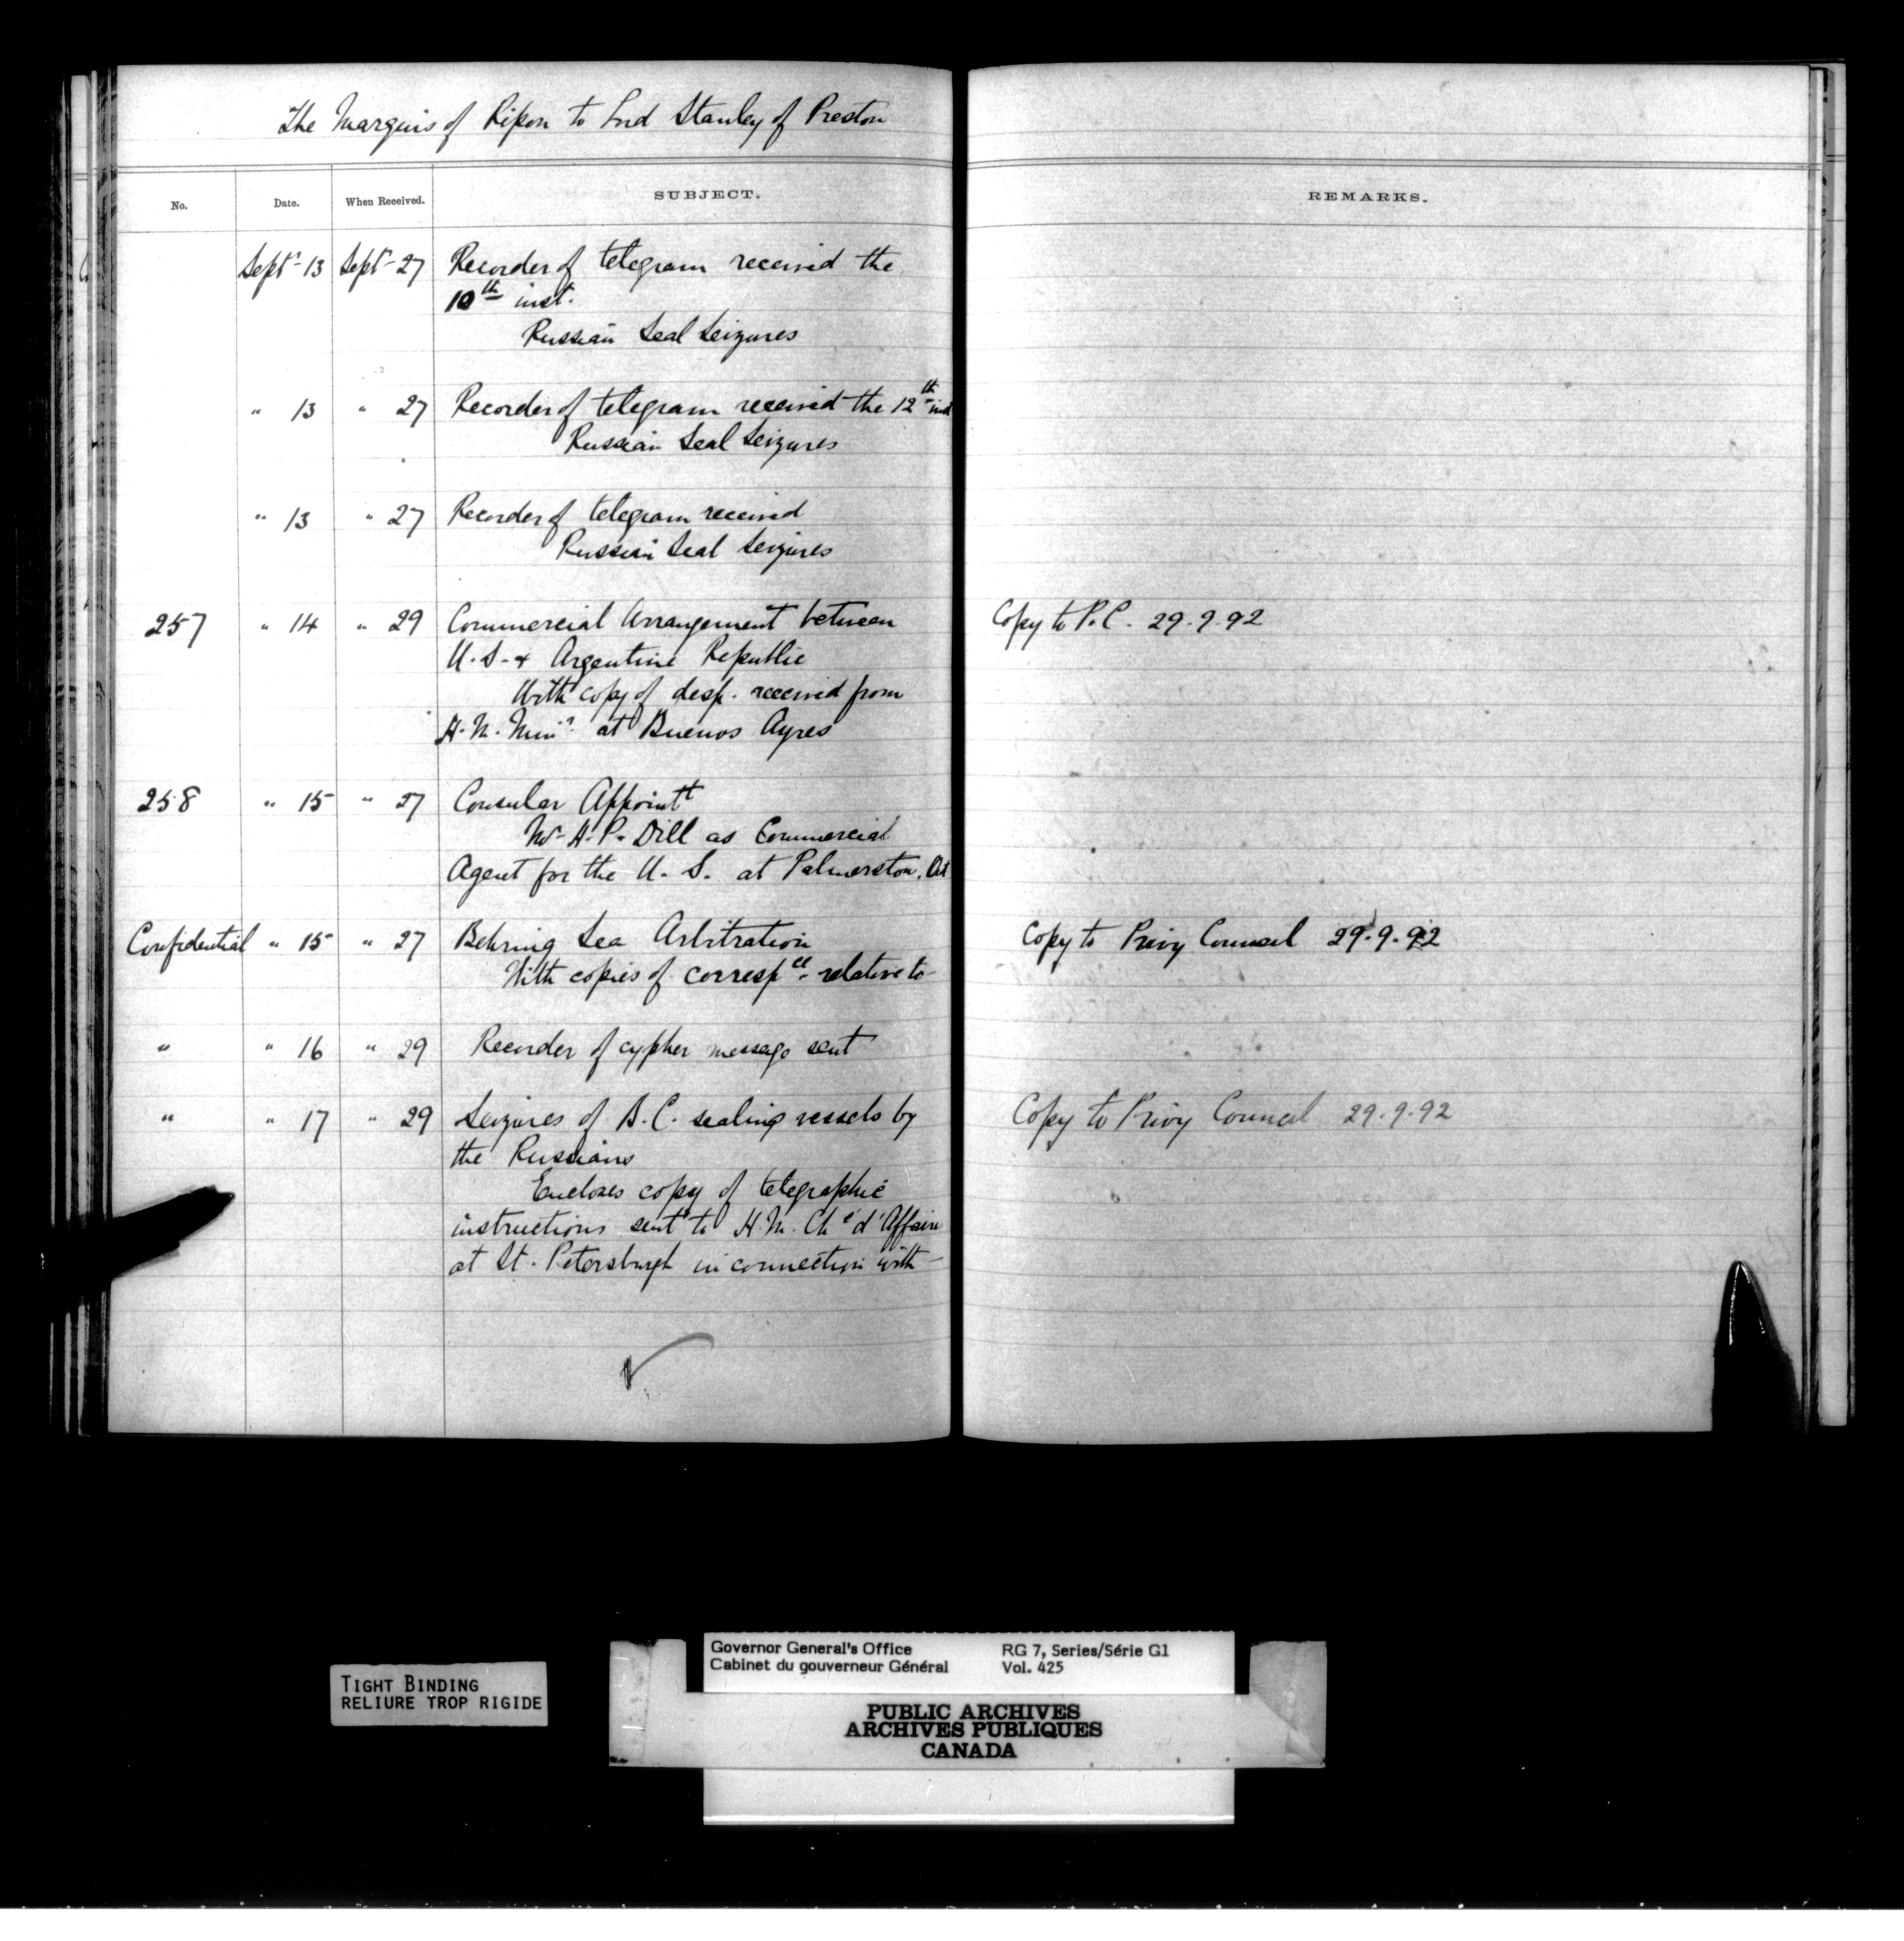 The Marquis of Ripon to Lord Stanley of Preston
No. Date. When Received. SUBJECT. REMARKS.
Septr 13 Sept 27 Recorder of telegram received the
10th inst.
Russian Seal Seizures
" 13 " 27 Recorder of telegram received the 12th inst
Russian Seal Seizures
" 13 " 27 Recorder of telegram received
Russian Seal Seizures
257 " 14 " 29 Commercial Arrangement between Copy to P.C. 29.9.92
U.S. & Argentine Republic
With copy of desp. received from
H.M. Minr at Buenos Ayres
258 " 15 " 27 Consular Appointt
Mr H.P. Dill as Commercial
Agent for the U.S. at Palmerston, Ont
Confidential " 15 " 27 Behring Sea Arbitration Copy to Privy Council 29.9.92
With copies of correspce relative to
" " 16 " 29 Recorder of cypher message sent
" " 17 " 29 Seizures of B.C. sealing vessels by Copy to Privy Council 29.9.92
the Russians
Encloses copy of telegraphic
instructions sent to H.M. Ché d'Affaire
at St. Petersburgh in connection with
TIGHT BINDING
RELIURE TROP RIGIDE
Governor General's Office RG 7, Series/Série G1
Cabinet du gouverneur Général Vol. 425
PUBLIC ARCHIVES
ARCHIVES PUBLIQUES
CANADA